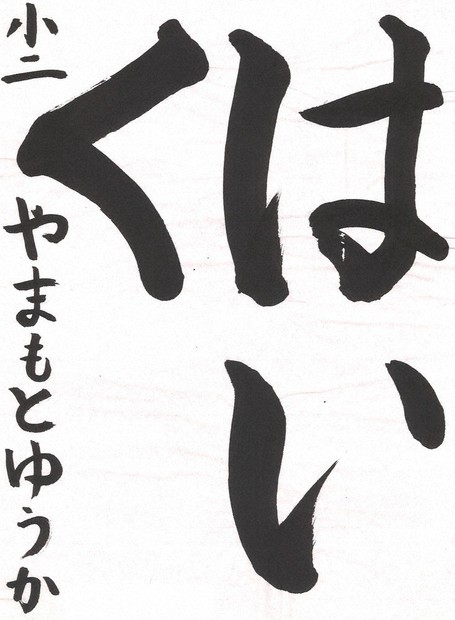 はい
く
小二 やまもとゆうか